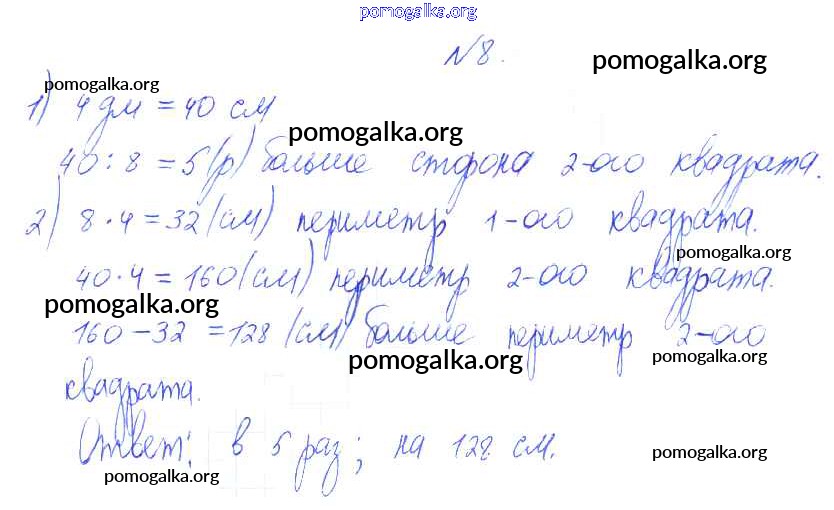 pomogalka.org
№8.
pomogalka.org
pomogalka.org
1) 4 дм = 40 см
pomogalka.org
40 : 8 = 5 (р) больше сторона 2-ого квадрата.
2) 8 · 4 = 32 (см) периметр 1-ого квадрата.
pomogalka.org
40 · 4 = 160 (см) периметр 2-ого квадрата.
pomogalka.org
160 - 32 = 128 (см) больше периметр 2-ого
pomogalka.org
pomogalka.org
квадрата.
Ответ: в 5 раз; на 128 см.
pomogalka.org
pomogalka.org